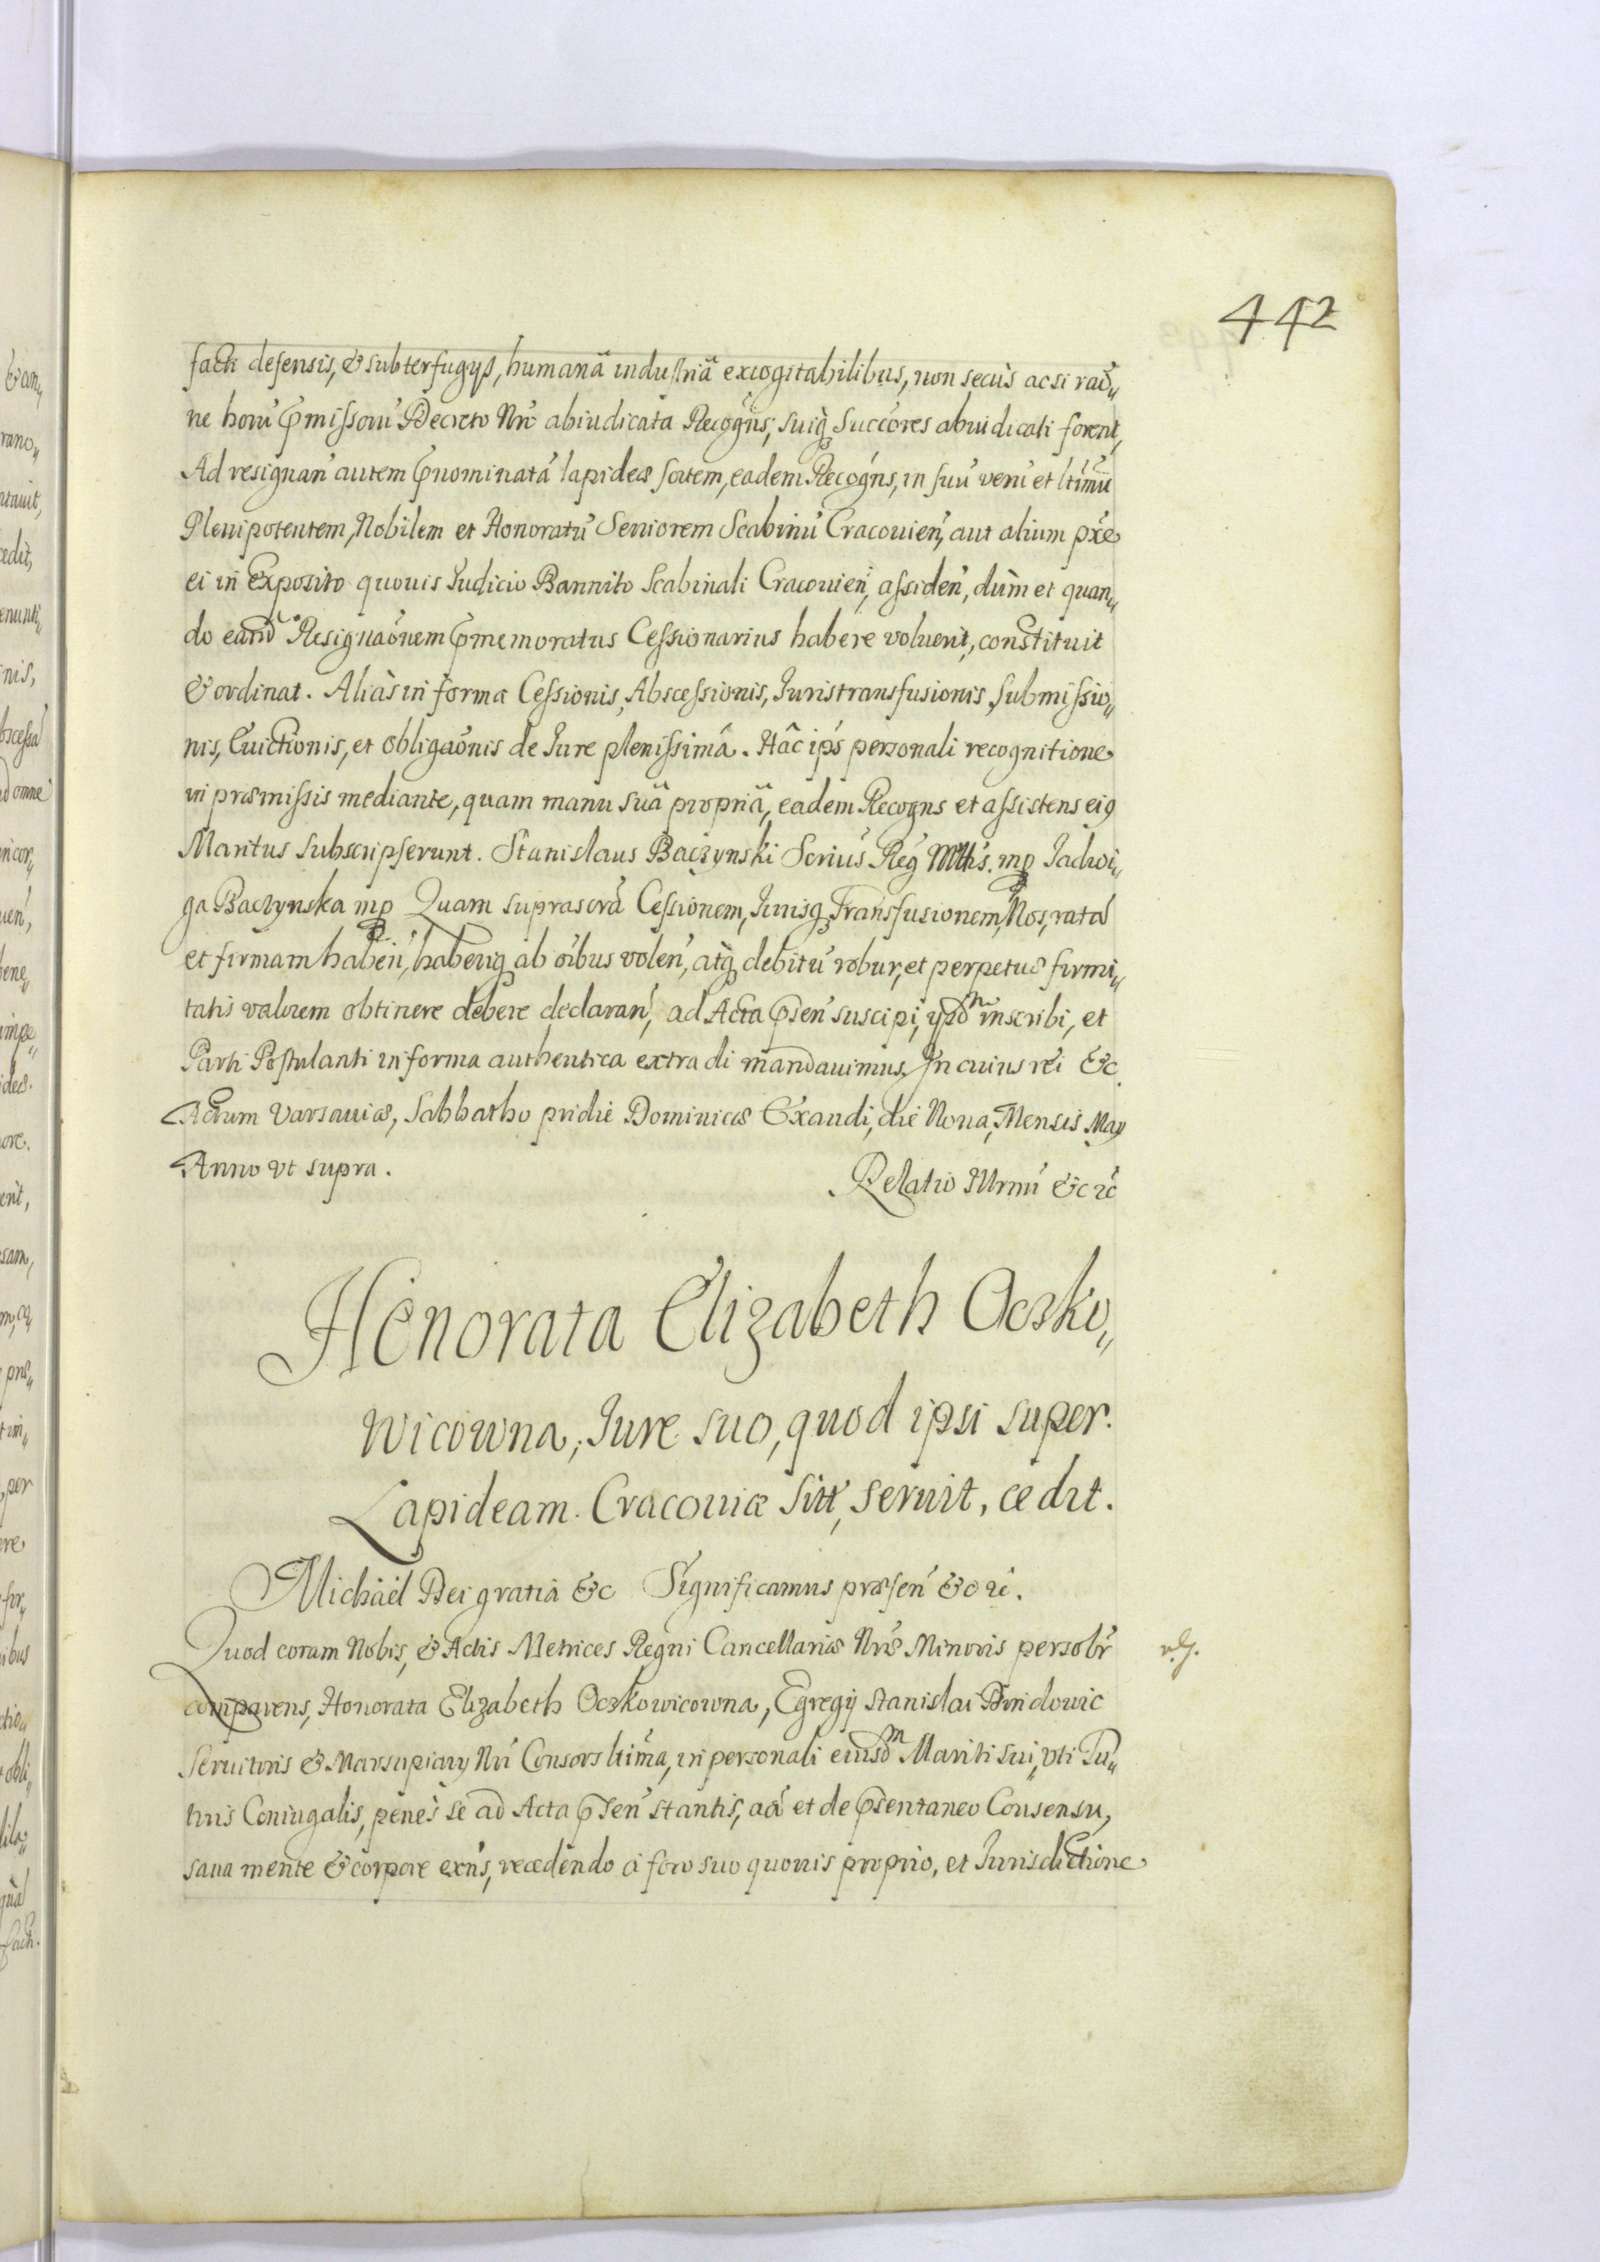 442
facti defensis, & subterfugys, humanâ industriâ excogitabilibus, non secùs ac si raõ„
ne horũ p̃missorũ Decreto Nr̃o abiudicata Recogñs, suiq̃ Succõres abiudicati forent,
Ad resignañ autem p̃nominatã lapideæ sortem, eadem Recogñs, in suũ verũ et ltĩmũ
Plenipotentem, Nobilem et Honoratũ Seniorem Scabinũ Cracovieñ, aut alium
ei in Exposito quovis Iudicio Bannito Scabinali Cracovieñ, assideñ, dùm et quan„
do eand Resignaõnem p̃memoratus Cessionarius habere voluerit, constituit
& ordinat. Aliàs in forma Cessionis, Abscessionis, Iuristransfusionis, Submissio„
nis, Evictionis, et Obligaõnis de Iure plenissimâ. Hâc ip̃s personali recognitione
in præmissis mediante, quam manu suâ propriâ, eadem Recogns et assistens ei9
Maritus subscripserunt. Stanislaus Baczynski Scrius Reg Mttis. mp Jadwi„
ga Baczynska mp Quam suprascrã Cessionem, Iurisq̃ Transfusionem, Nos, ratã
et firmam habeñ, haberiq̃ ab oĩbus voleñ, atq̃ debitũ robur, et perpetuæ firmi„
tatis valorem obtinere debere declarañ, ad Acta p̃señ suscipi, ijsdm inscribi, et
Parti Postulanti in forma authentica extradi mandavimus. In cuius rei &c.
Actum Varsaviæ, Sabbatho pridie Dominicæ Exaudi, die Nona, Mensis May
Anno vt supra.
Relatio Illrmi &c rc
Honorata Elizabeth Oczko„
wicowna, Iure suo, quod ipsi super
Lapideam Cracoviæ Sitt, servit, cedit.
Michaël Dei gratiâ &c Significamus præseñ &c rc.
Quod coram Nobis, & Actis Metrices Regni Cancellariæ Nræ Minoris persolr̃
comparens, Honorata Elizabeth Oczkowicowna, Egregij Stanislai
Servitoris & Marsupiarij Nr̃i Consors ltĩma, in personali eiusdm Mariti sui, vti Tu„
toris Coniugalis, penès se ad Acta p̃señ stantis, aã et de p̃sentaneo Consensu,
sana mente & corpore exñs, recedendo à foro suo quovis proprio, et Iurisdictione